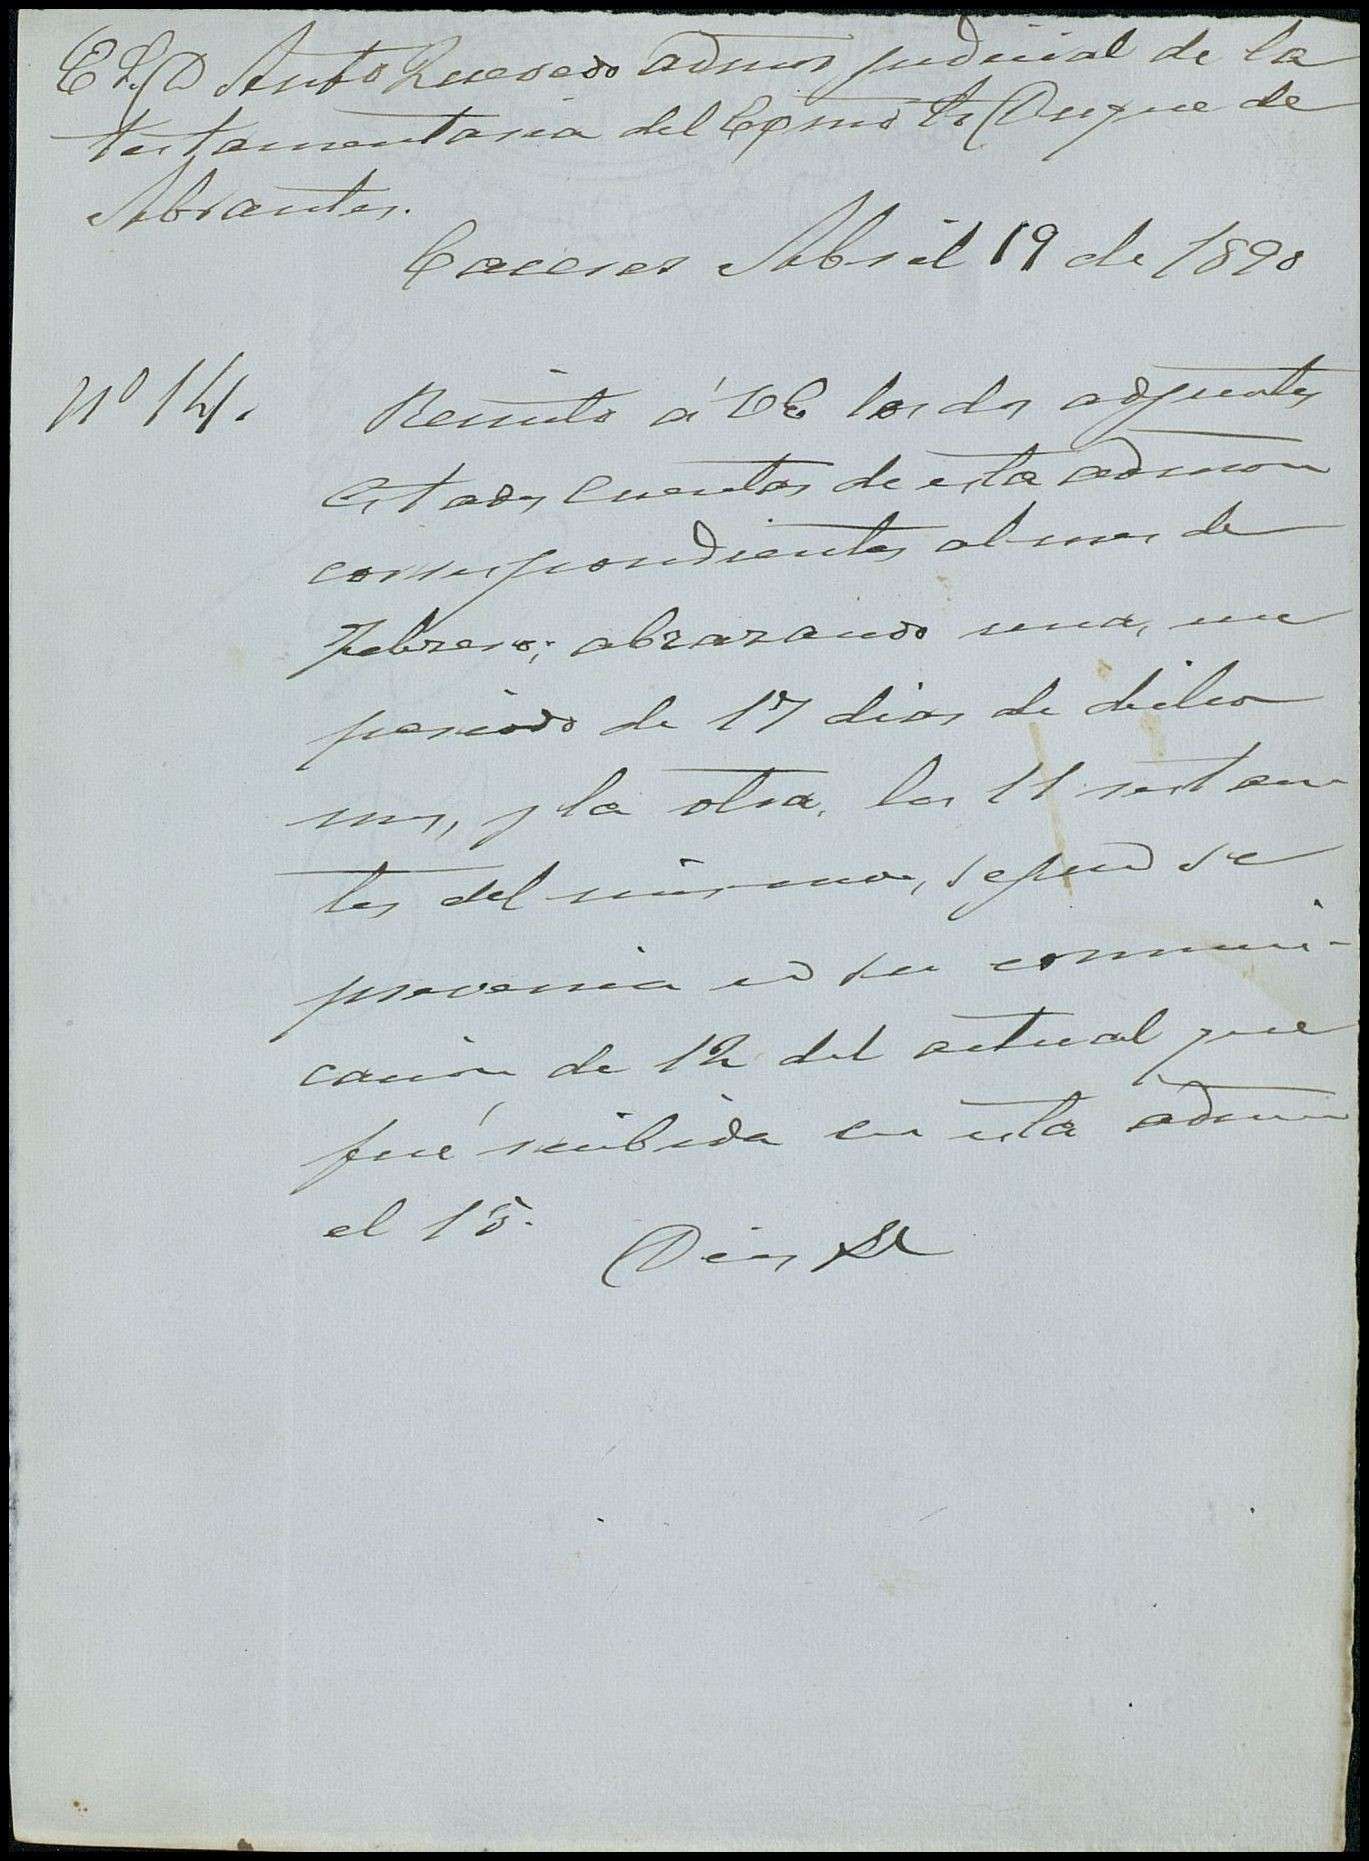 E S. D Anto Quesedo admor judicial de la
testamentaria del Excmo Sr Duque de
Abrantes.
Caceres Abril 19 de 1890
Nº 14.
Remito á VE los dos adjuntos
estados cuentas de esta admon
correspondientes al mes de
Febrero; abrazando una, un
periodo de 17 dias de dicho
mes, y la otra, los 11 restan-
tes del mismo, segun se
prevenia en su comuni-
cación de 12 del actual que
fué recibida en esta admon
el 15.
Dios &